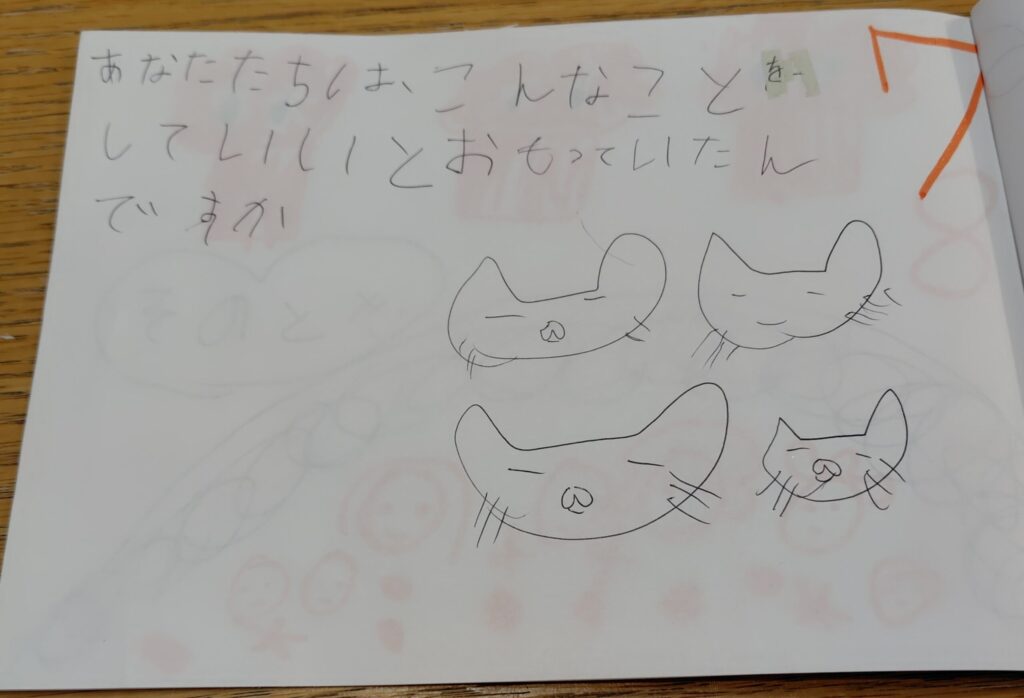 あなたたちは、こんなことを
していいとおもっていたん
ですか
7
そのとき
8